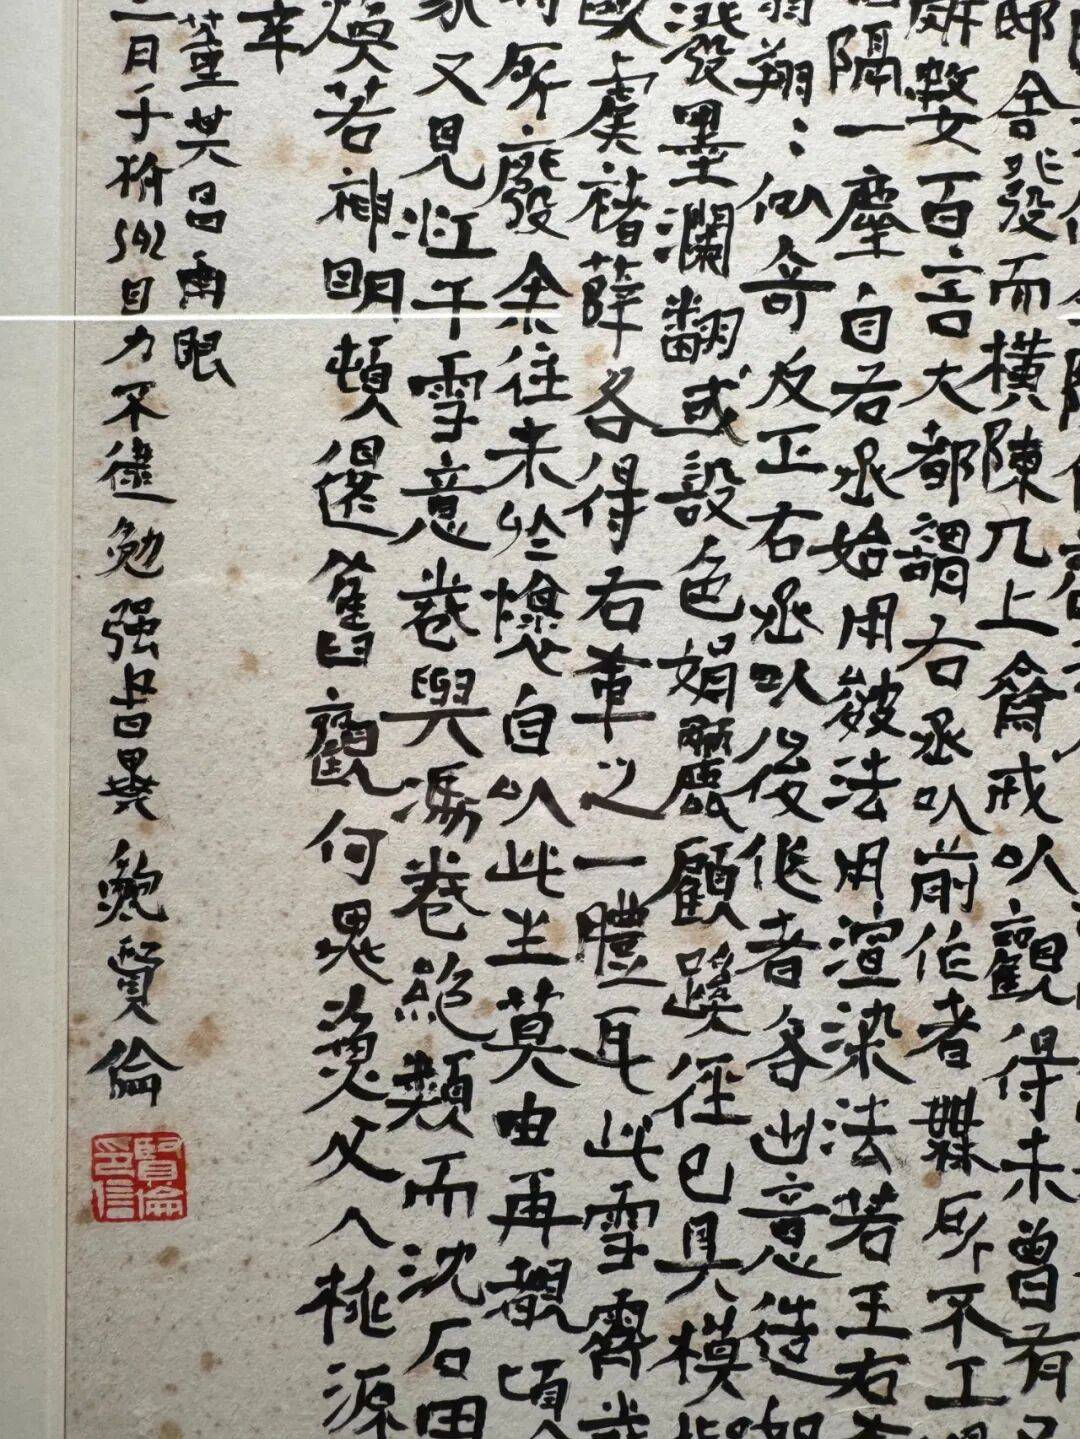 邸舍發而橫陳几上齋戒以觀得未曾有
百言大都謂右丞以前作者無所不工
隔一塵自右丞始用皴法用渲染法若王右
翔翔似奇反正右丞以後作者各出意造如
潑墨瀾翻或設色娟麗顧蹊徑已具模
歐虞褚薛各得右軍之一體耳此雪霽
所廢余往來於懷自以此生莫由再覩頃
又見江干雪意卷與馮卷絕類而沈石田
煥若神明頓還舊觀何異漁父入桃源
幸
董其昌再眼
二月于 目力不逮勉强書畢鮑賢倫
賢倫印信